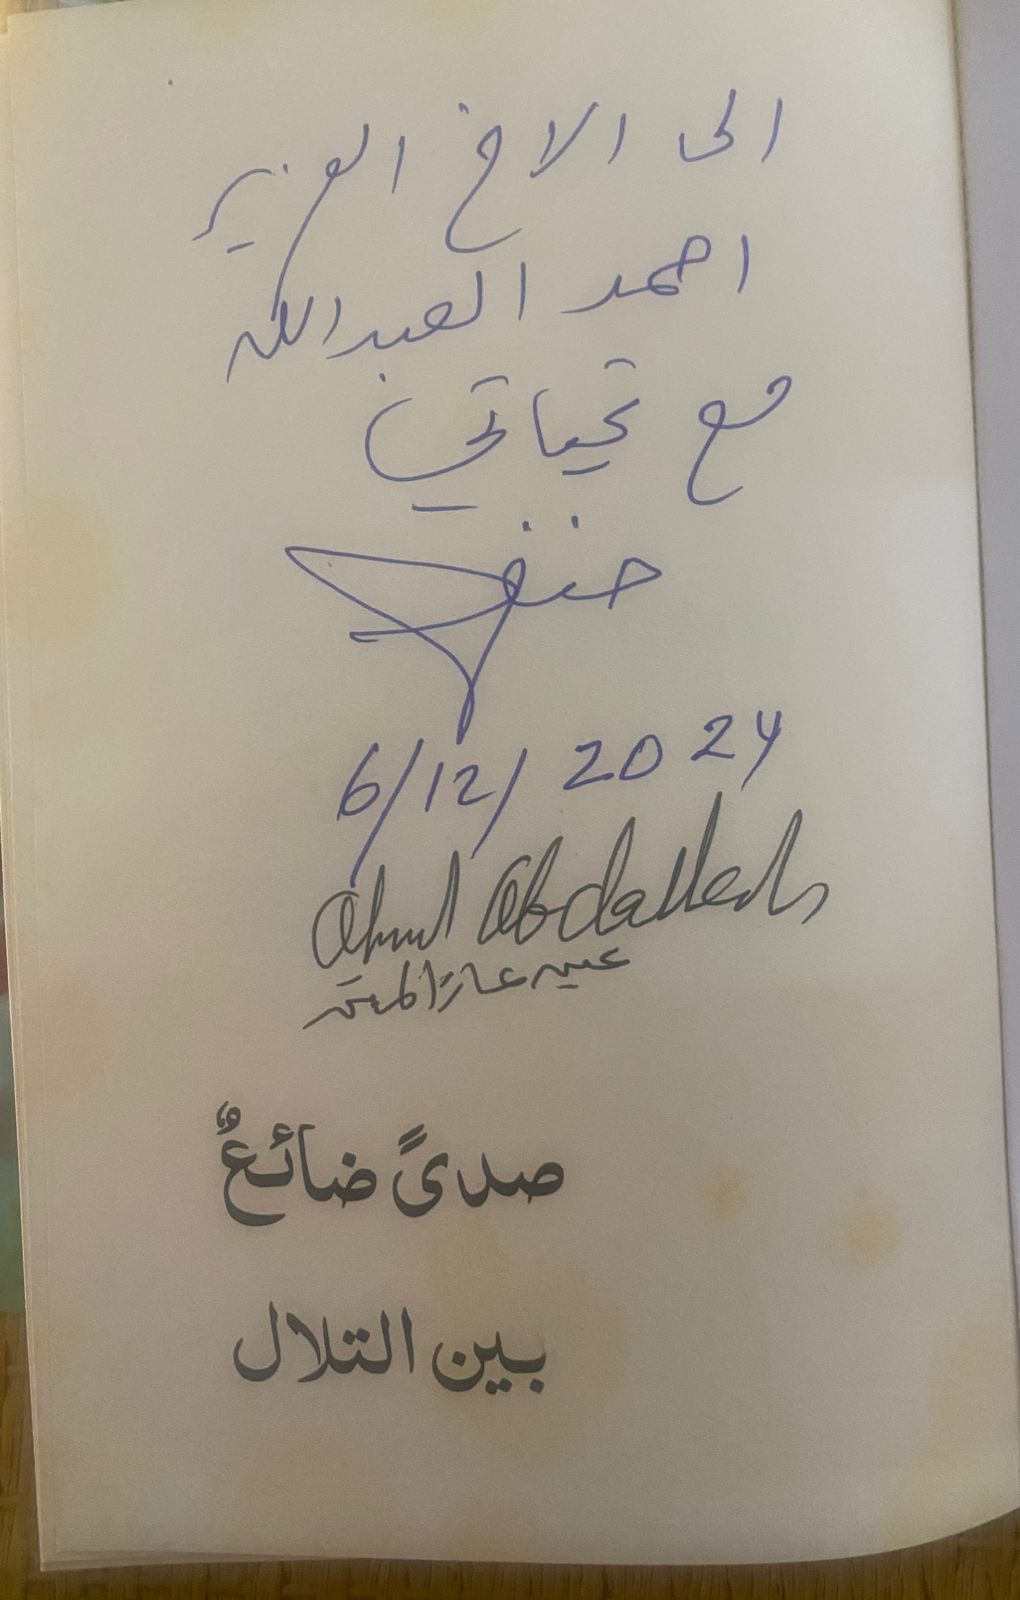 الى الاخ العزيز
احمد العبدالله
مع تحياتي
6/12/2024
Ahmd Abdallah
صدىً ضائعٌ
بين التلال